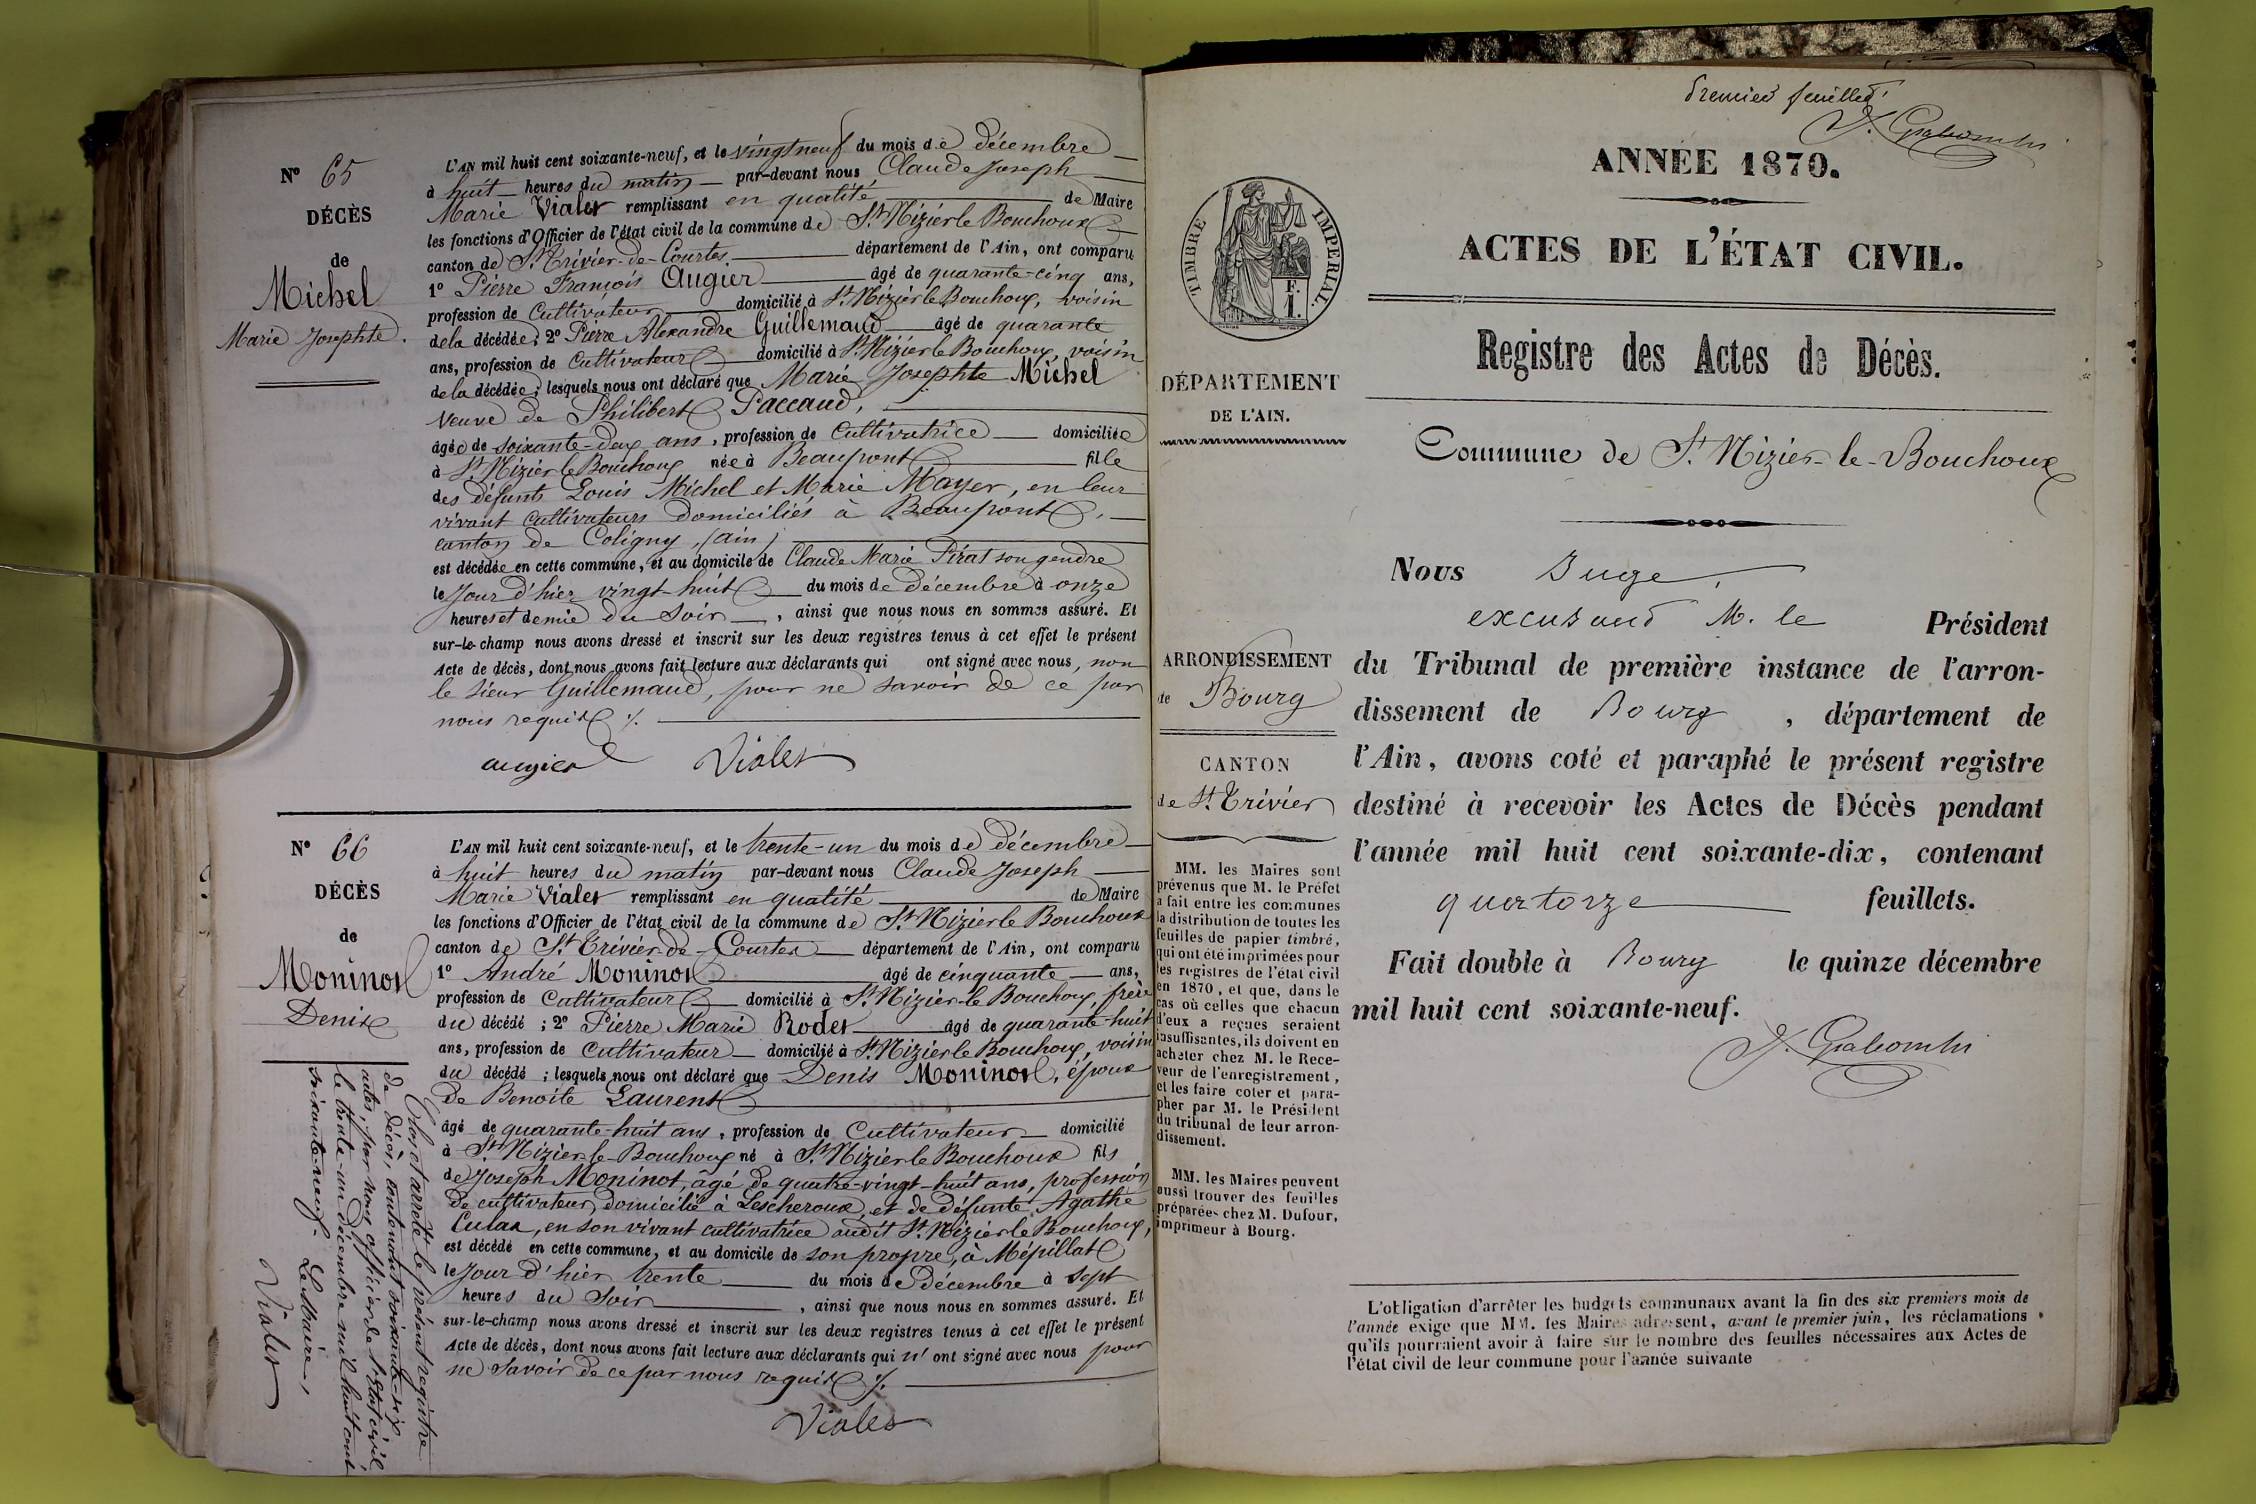 N° 65
DÉCÈS
de
Michel
Marie Josephte.
L'AN mil huit cent soixante-neuf, et le vingt neuf du mois de décembre
à huit heures du matin par-devant nous Claude Joseph
Marie Vialet remplissant en qualité de Maire
les fonctions d'Officier de l'état civil de la commune de St Nizier le Bouchoux
canton de St Trivier-de-Courtes département de l'Ain, ont comparu
1° Pierre François Augier âgé de quarante-cinq ans,
profession de Cultivateur domicilié à St Nizier le Bouchoux, voisin
de la décédée; 2° Pierre Alexandre Guillemaud âgé de quarante
ans, profession de Cultivateur domicilié à St Nizier le Bouchoux, voisin
de la décédée; lesquels nous ont déclaré que Marie Josephte Michel
veuve de Philibert Paccaud,
âgée de soixante-deux ans, profession de Cultivatrice domiciliée
à St Nizier le Bouchoux née à Beaupont fille
des défunts Louis Michel et Marie Mayer, en leur
vivant cultivateurs domiciliés à Beaupont,
canton de Coligny, (ain)
est décédée en cette commune, et au domicile de Claude Marie Pirat son gendre
le Jour d'hier vingt-huit du mois de décembre à onze
heures et demie du Soir, ainsi que nous nous en sommes assuré. Et
sur-le-champ nous avons dressé et inscrit sur les deux registres tenus à cet effet le présent
Acte de décès, dont nous avons fait lecture aux déclarants qui ont signé avec nous, non
le sieur Guillemaud, pour ne savoir de ce par
nous requis ./.
augier Vialet
N° 66
DÉCÈS
de
Moninot
Denis
L'AN mil huit cent soixante-neuf, et le trente-un du mois de décembre
à huit heures du matin par-devant nous Claude Joseph
Marie Vialet remplissant en qualité de Maire
les fonctions d'Officier de l'état civil de la commune de St Nizier le Bouchoux
canton de St Trivier-de-Courtes département de l'Ain, ont comparu
1° André Moninot âgé de cinquante ans,
profession de Cultivateur domicilié à St Nizier-le Bouchoux, frère
du décédé; 2° Pierre Marie Rodet âgé de quarante-huit
ans, profession de Cultivateur domicilié à St Nizier le Bouchoux, voisin
du décédé; lesquels nous ont déclaré que Denis Moninot, époux
de Benoite Laurent
âgé de quarante-huit ans, profession de Cultivateur domicilié
à St Nizier-le-Bouchoux né à St Nizier le Bouchoux fils
de Joseph Moninot, âgé de quatre-vingt-huit ans, profession
de cultivateur, domicilié à Lescheroux, et de défunte Agathe
en son vivant cultivatrice audit St Nizier le Bouchoux,
est décédé en cette commune, et au domicile de son propre, à Mépillat
le Jour d'hier trente du mois de décembre à sept
heures du Soir, ainsi que nous nous en sommes assuré. Et
sur-le-champ nous avons dressé et inscrit sur les deux registres tenus à cet effet le présent
Acte de décès, dont nous avons fait lecture aux déclarants qui n'ont signé avec nous pour
ne savoir de ce par nous requis ./.
Vialet
Clos et arrêté le présent registre
de décès, contenant soixante-six
actes, par nous officier de l'état civil,
le trente-un décembre mil huit cent
soixante-neuf. Le Maire,
Vialet
Premier feuillet
ANNÉE 1870.
ACTES DE L'ÉTAT CIVIL.
Registre des Actes de Décès.
TIMBRE IMPÉRIAL.
F.
1.
DÉPARTEMENT
DE L'AIN.
ARRONDISSEMENT
de Bourg
CANTON
de St Trivier
MM. les Maires sont
prévenus que M. le Préfet
a fait entre les communes
la distribution de toutes les
feuilles de papier timbré,
qui ont été imprimées pour
les registres de l'état civil
en 1870, et que, dans le
cas où celles que chacun
d'eux a reçues seraient
insuffisantes, ils doivent en
acheter chez M. le Rece-
veur de l'enregistrement,
et les faire coter et para-
pher par M. le Président
du tribunal de leur arron-
dissement.
MM. les Maires peuvent
aussi trouver des feuilles
préparées chez M. Dufour,
imprimeur à Bourg.
Commune de St Nizier-le-Bouchoux
Nous Juge,
M. le Président
du Tribunal de première instance de l'arron-
dissement de Bourg, département de
l'Ain, avons coté et paraphé le présent registre
destiné à recevoir les Actes de Décès pendant
l'année mil huit cent soixante-dix, contenant
quatorze feuillets.
Fait double à Bourg le quinze décembre
mil huit cent soixante-neuf.
L'obligation d'arrêter les budgets communaux avant la fin des six premiers mois de
l'année exige que MM. les Maires adressent, avant le premier juin, les réclamations
qu'ils pourraient avoir à faire sur le nombre des feuilles nécessaires aux Actes de
l'état civil de leur commune pour l'année suivante